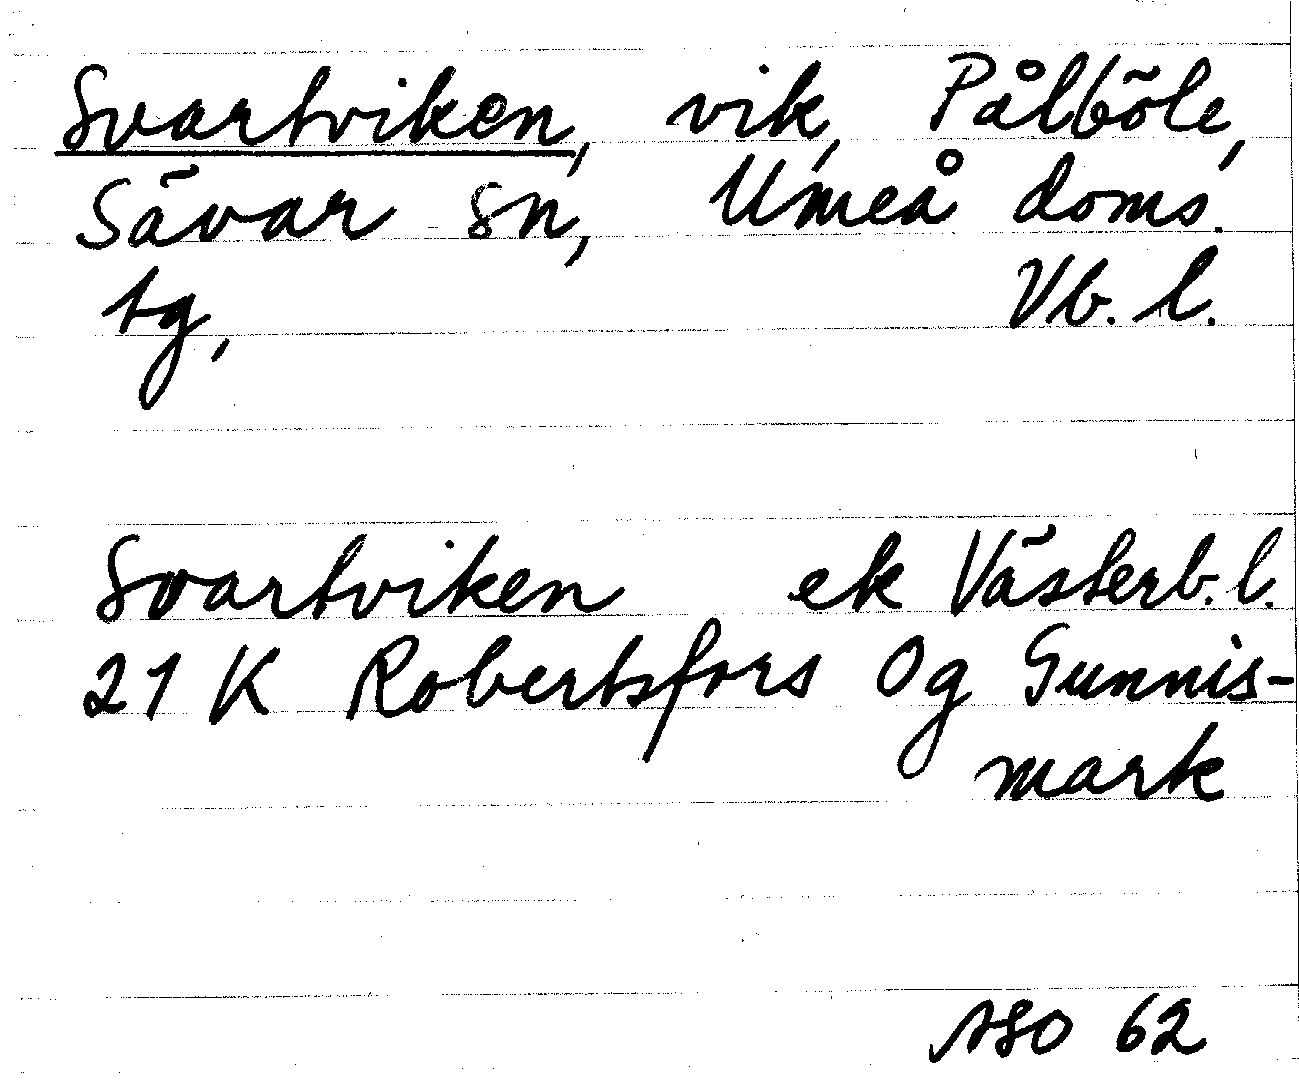 Svartviken, vik, Pålböle,
Sävar sn, Umeå doms.
tg, Vb. l.
Svartviken ek Västerb. l.
21 K Robertsfors Og Gunnis-
mark
ASO 62